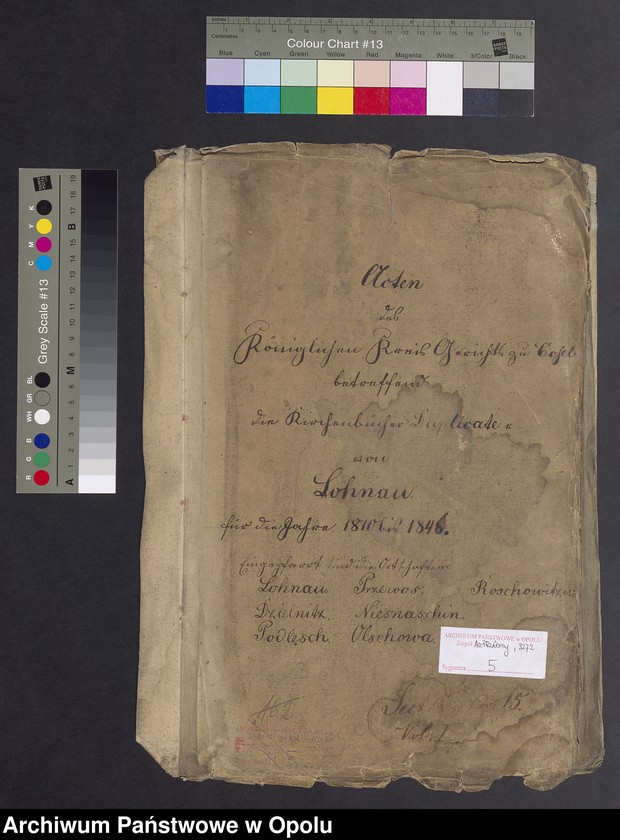 Colour Chart #13
Blue Cyan Green Yellow Red Magenta White 3/Color Black
Grey Scale #13
Acten
des
Königlichen Kreis Gerichts zu Cosel
betreffend
die Kirchenbücher Duplicate
von
Lohnau
für die Jahre 1810 bis 1846.
Eingepfarrt sind die Ortschaften
Lohnau Przewos, Roschowitz
Dzielnitz, Niesnaschin.
Podlesch, Olschowa
ARCHIWUM PAŃSTWOWE w OPOLU
Zespół 3272
Sygnatura 5
15.
Vol. I
Archiwum Państwowe w Opolu